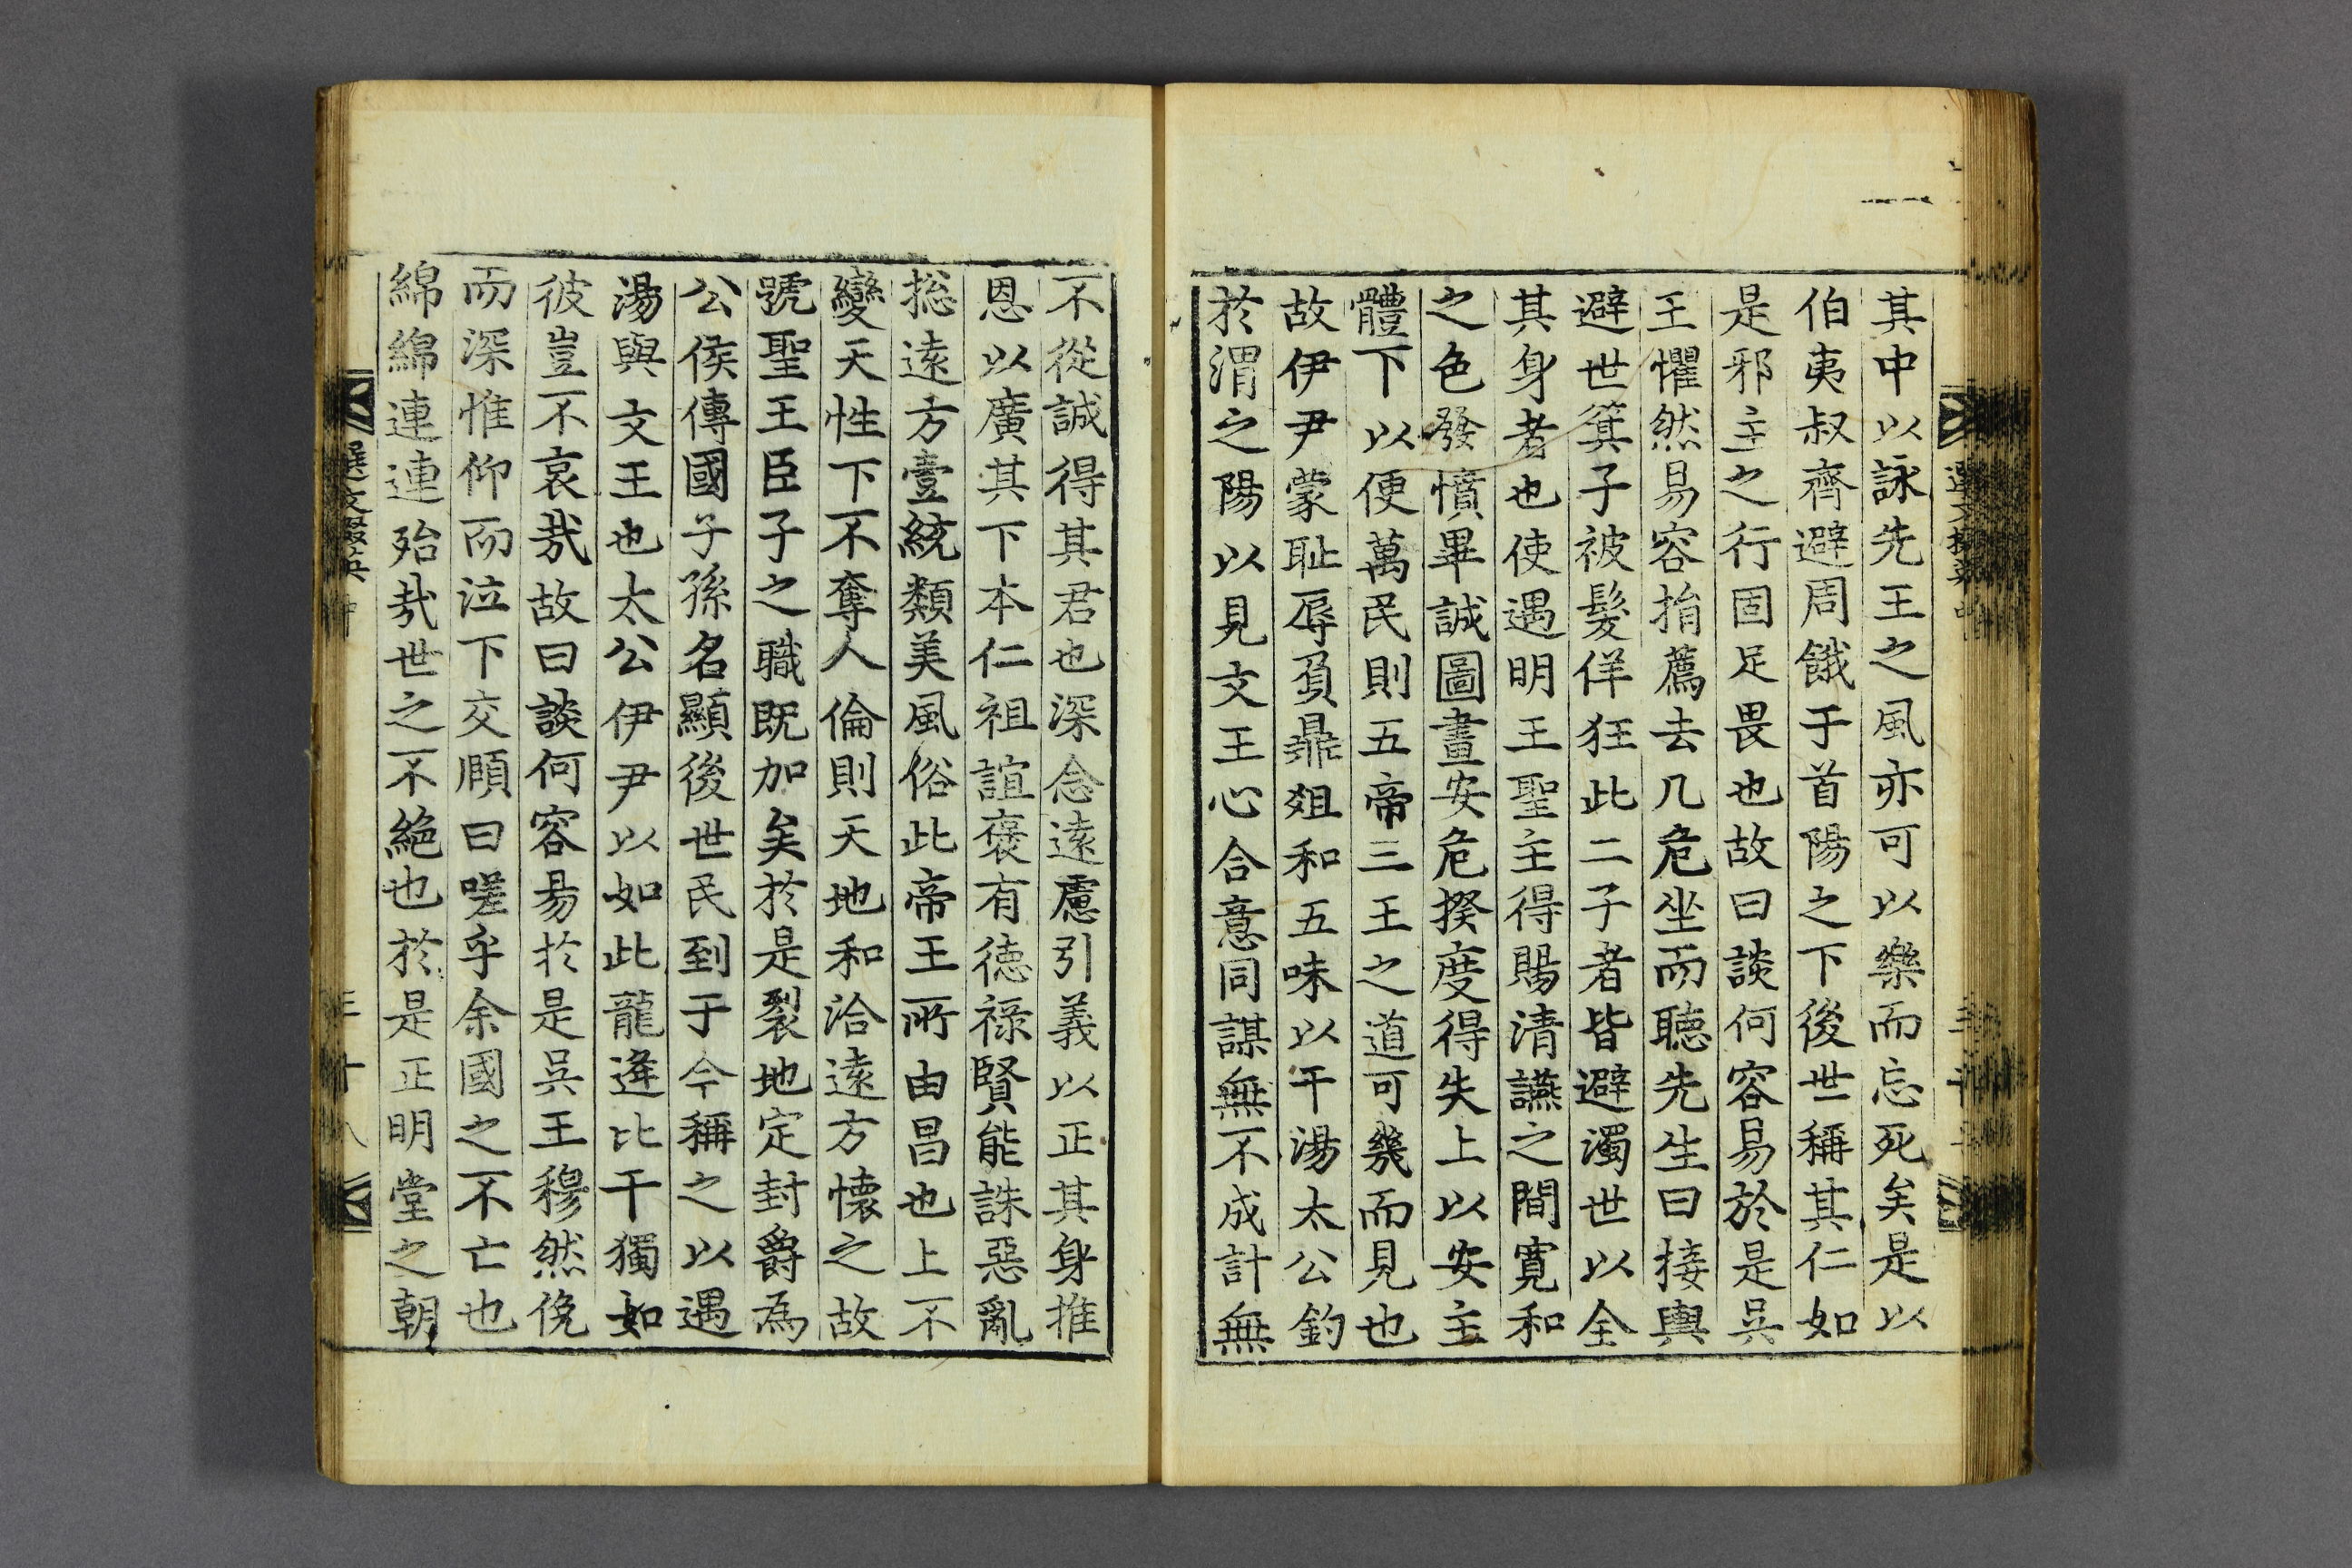 其中以詠先王之風亦可以樂而忘死矣是以
伯夷叔齊避周餓于首陽之下後世稱其仁如
是邪主之行固足畏也故曰談何容易於是吳
王懼然易容捐薦去几危坐而聽先生曰接輿
避世箕子被髮佯狂此二子者皆避濁世以全
其身者也使遇明王聖主得賜清讌之間寬和
之色發憤畢誠圖畫安危揆度得失上以安主
體下以便萬民則五帝三王之道可幾而見也
故伊尹蒙耻辱負鼎俎和五味以干湯太公釣
於渭之陽以見文王心合意同謀無不成計無
不從誠得其君也深念遠慮引義以正其身推
恩以廣其下本仁祖誼褒有德祿賢能誅惡亂
摠遠方壹統類美風俗此帝王所由昌也上不
變天性下不奪人倫則天地和洽遠方懷之故
號聖王臣子之職既加矣於是裂地定封爵為
公侯傳國子孫名顯後世民到于今稱之以遇
湯與文王也太公伊尹以如此龍逄比干獨如
彼豈不哀哉故曰談何容易於是吳王穆然俛
而深惟仰而泣下交頤曰嗟乎余國之不亡也
綿綿連連殆哉世之不絕也於是正明堂之朝
選文掇英
三十八